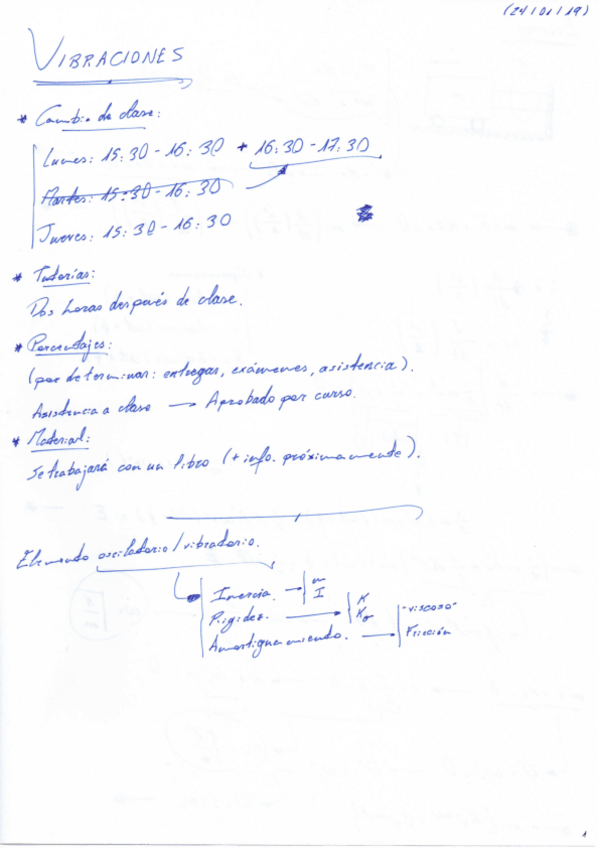 (24/01/19)
VIBRACIONES
* Cambio de clase:
Lunes: 15:30-16:30 + 16:30-17:30
Martes: 15:30-16:30
Jueves: 15:30-16:30
* Tutorías:
Dos horas después de clase.
* Porcentajes:
(por determinar: entregas, exámenes, asistencia).
Asistencia a clase → Aprobado por curso.
* Material:
Se trabajará con un libro (+ info. próximamente).
Elemento oscilatorio/vibratorio.
Inercia. → m
I
Rigidez. → K
Kθ
Amortiguamiento. → "viscoso"
Fricción
1